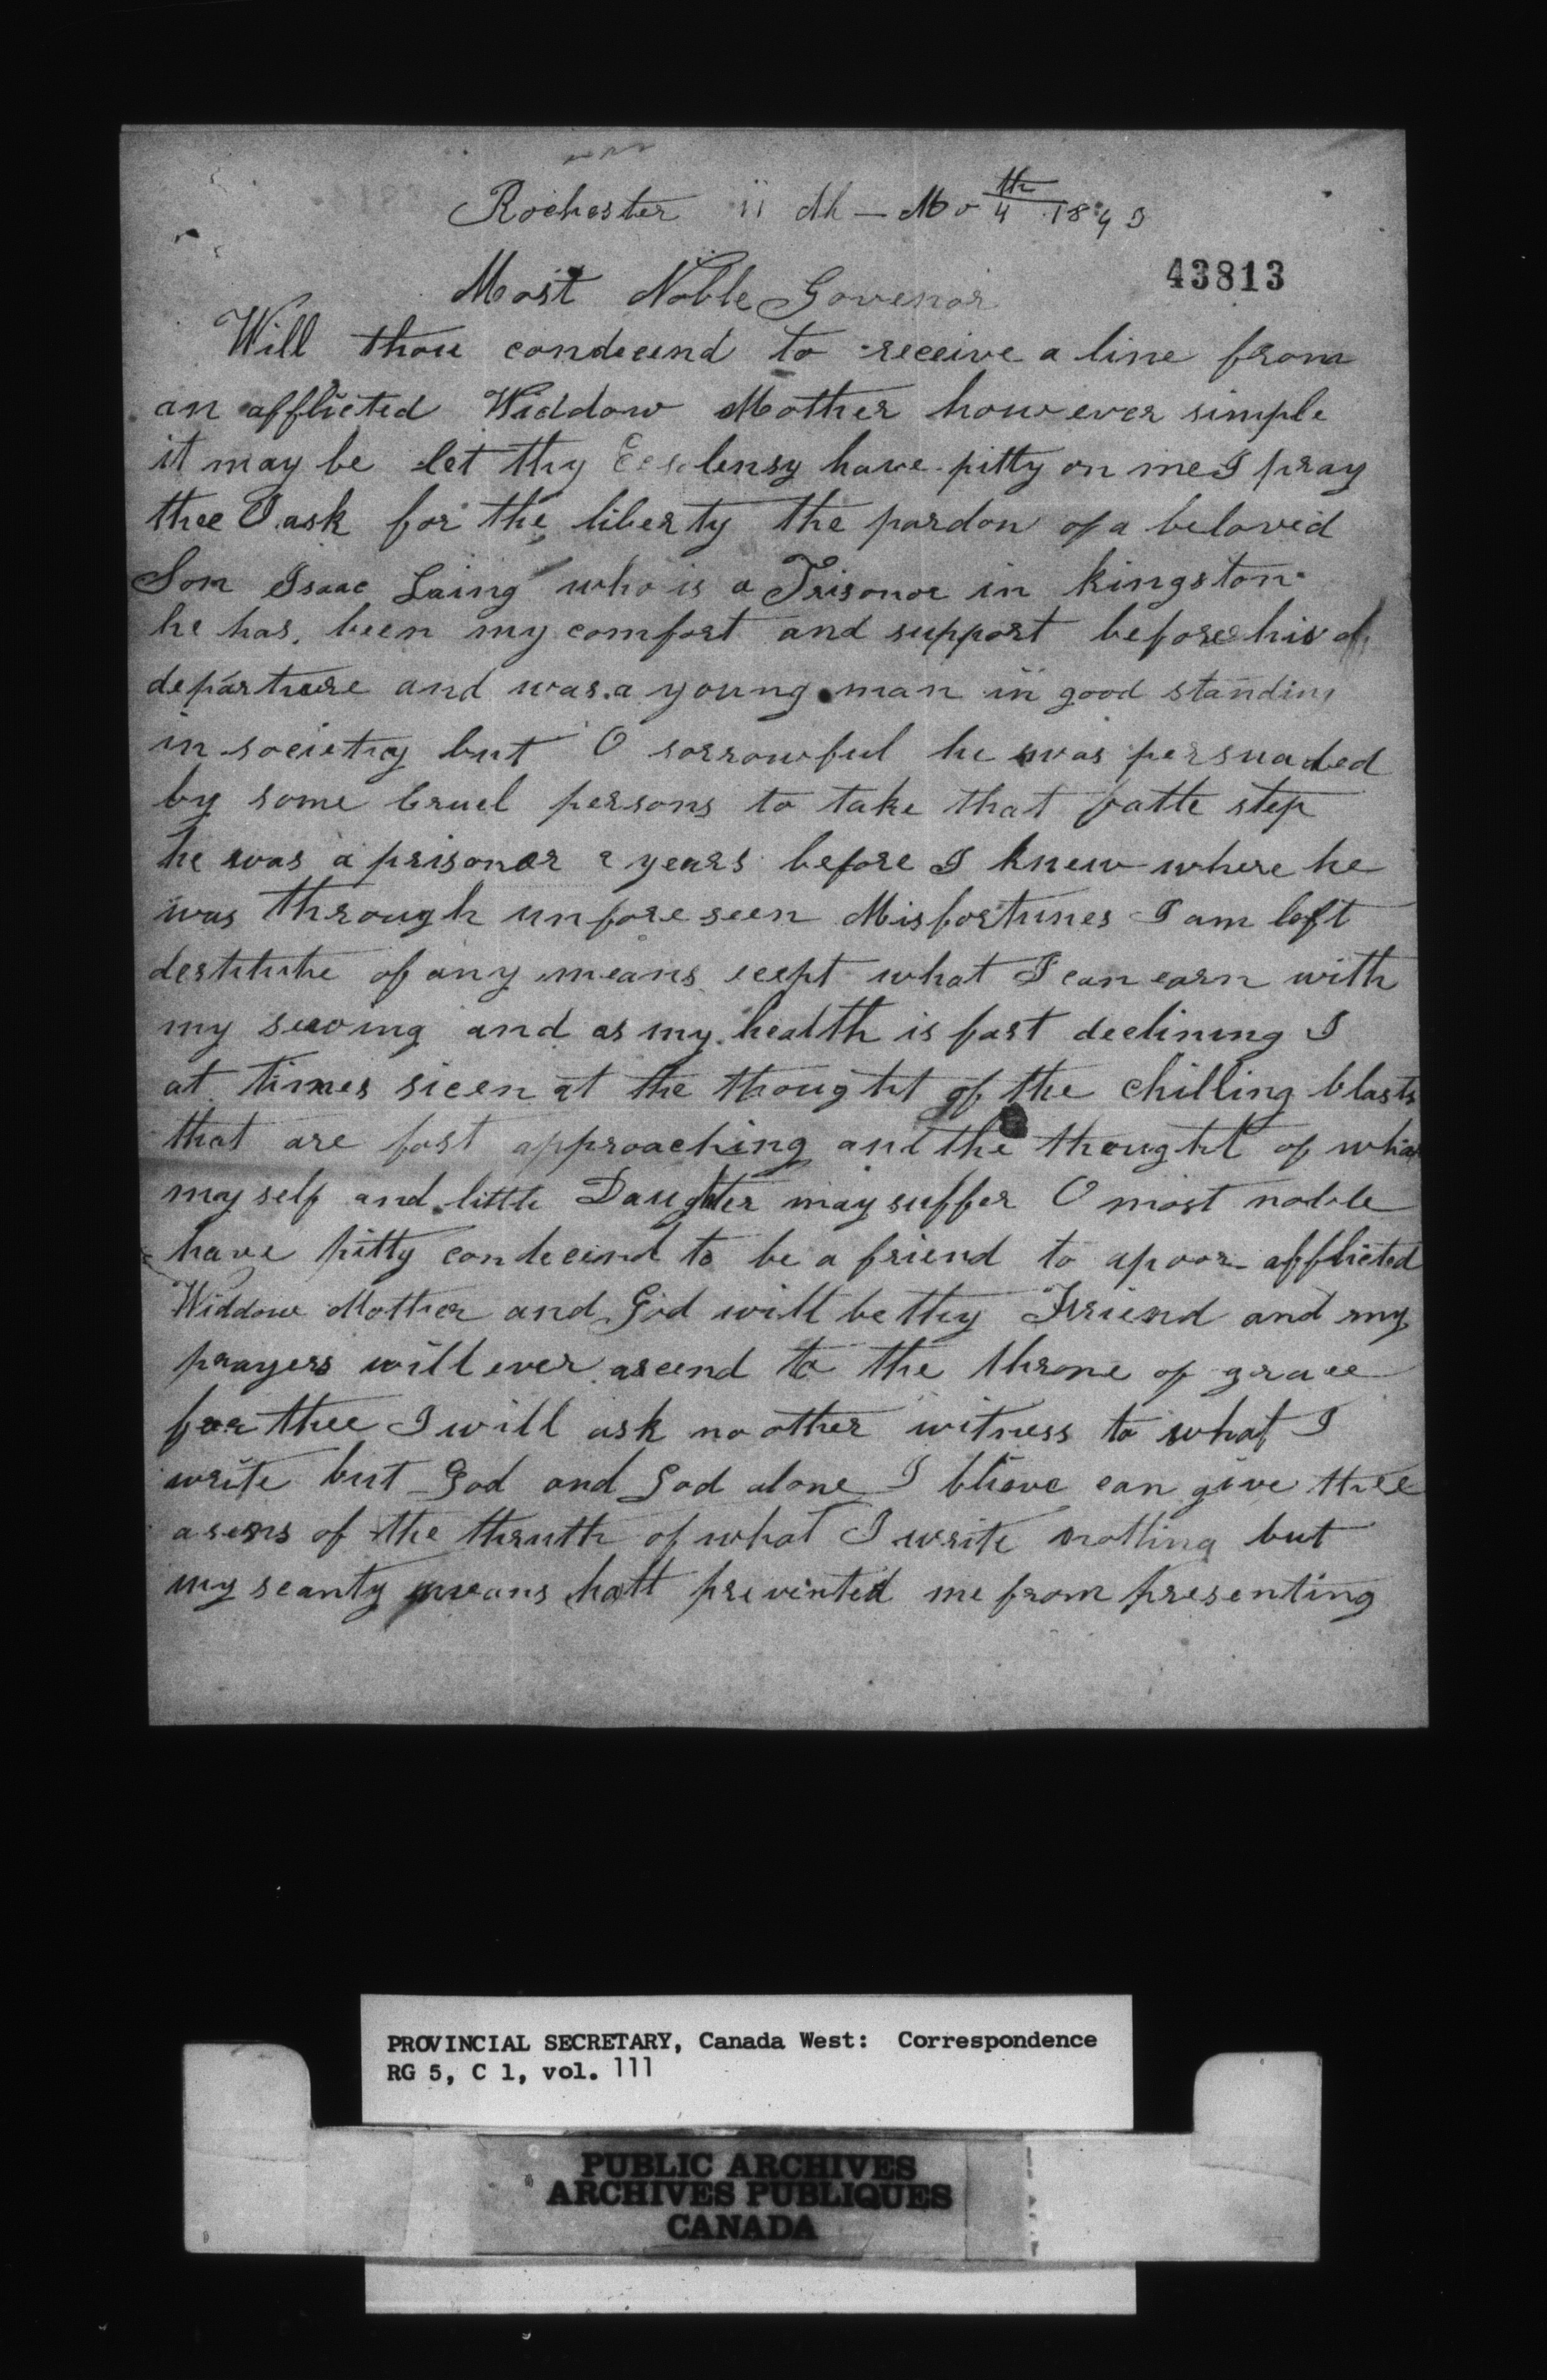 Rochester 11 th - Mo 4th 1843
43813
Most Noble Govenor
Will thou condecend to receive a line from
an afflicted Widdow Mother however simple
it may be let thy Eeselensy have pitty on me I pray
thee I ask for the liberty the pardon of a beloved
Son Isaac Laing who is a Prisonor in kingston
he has been my comfort and support before his d
departuere and was a young man in good standing
in society but O sorrowful he was persuaded
by some Cruel persons to take that fatle step
he was a prisoner 2 years before I knew where he
was through unfore seen Misfortunes I am left
destitute of any means ecept what I can earn with
my sewing and as my health is fast declining I
at times sicen at the thought of the chilling blasts
that are fast approaching and the thought of what
my self and little Daughter may suffer O most noble
have pitty condecend to be a friend to a poor afflicted
Widdow Mother and God will be thy Friend and my
prayers will ever ascend to the throne of grace
for thee I will ask no other witness to what I
write but God and God alone I blieve can give thee
a sens of the thruth of what I write notling but
my scanty means hatt prevented me from presenting
PROVINCIAL SECRETARY, Canada West: Correspondence
RG 5, C 1, vol. 111
PUBLIC ARCHIVES
ARCHIVES PUBLIQUES
CANADA